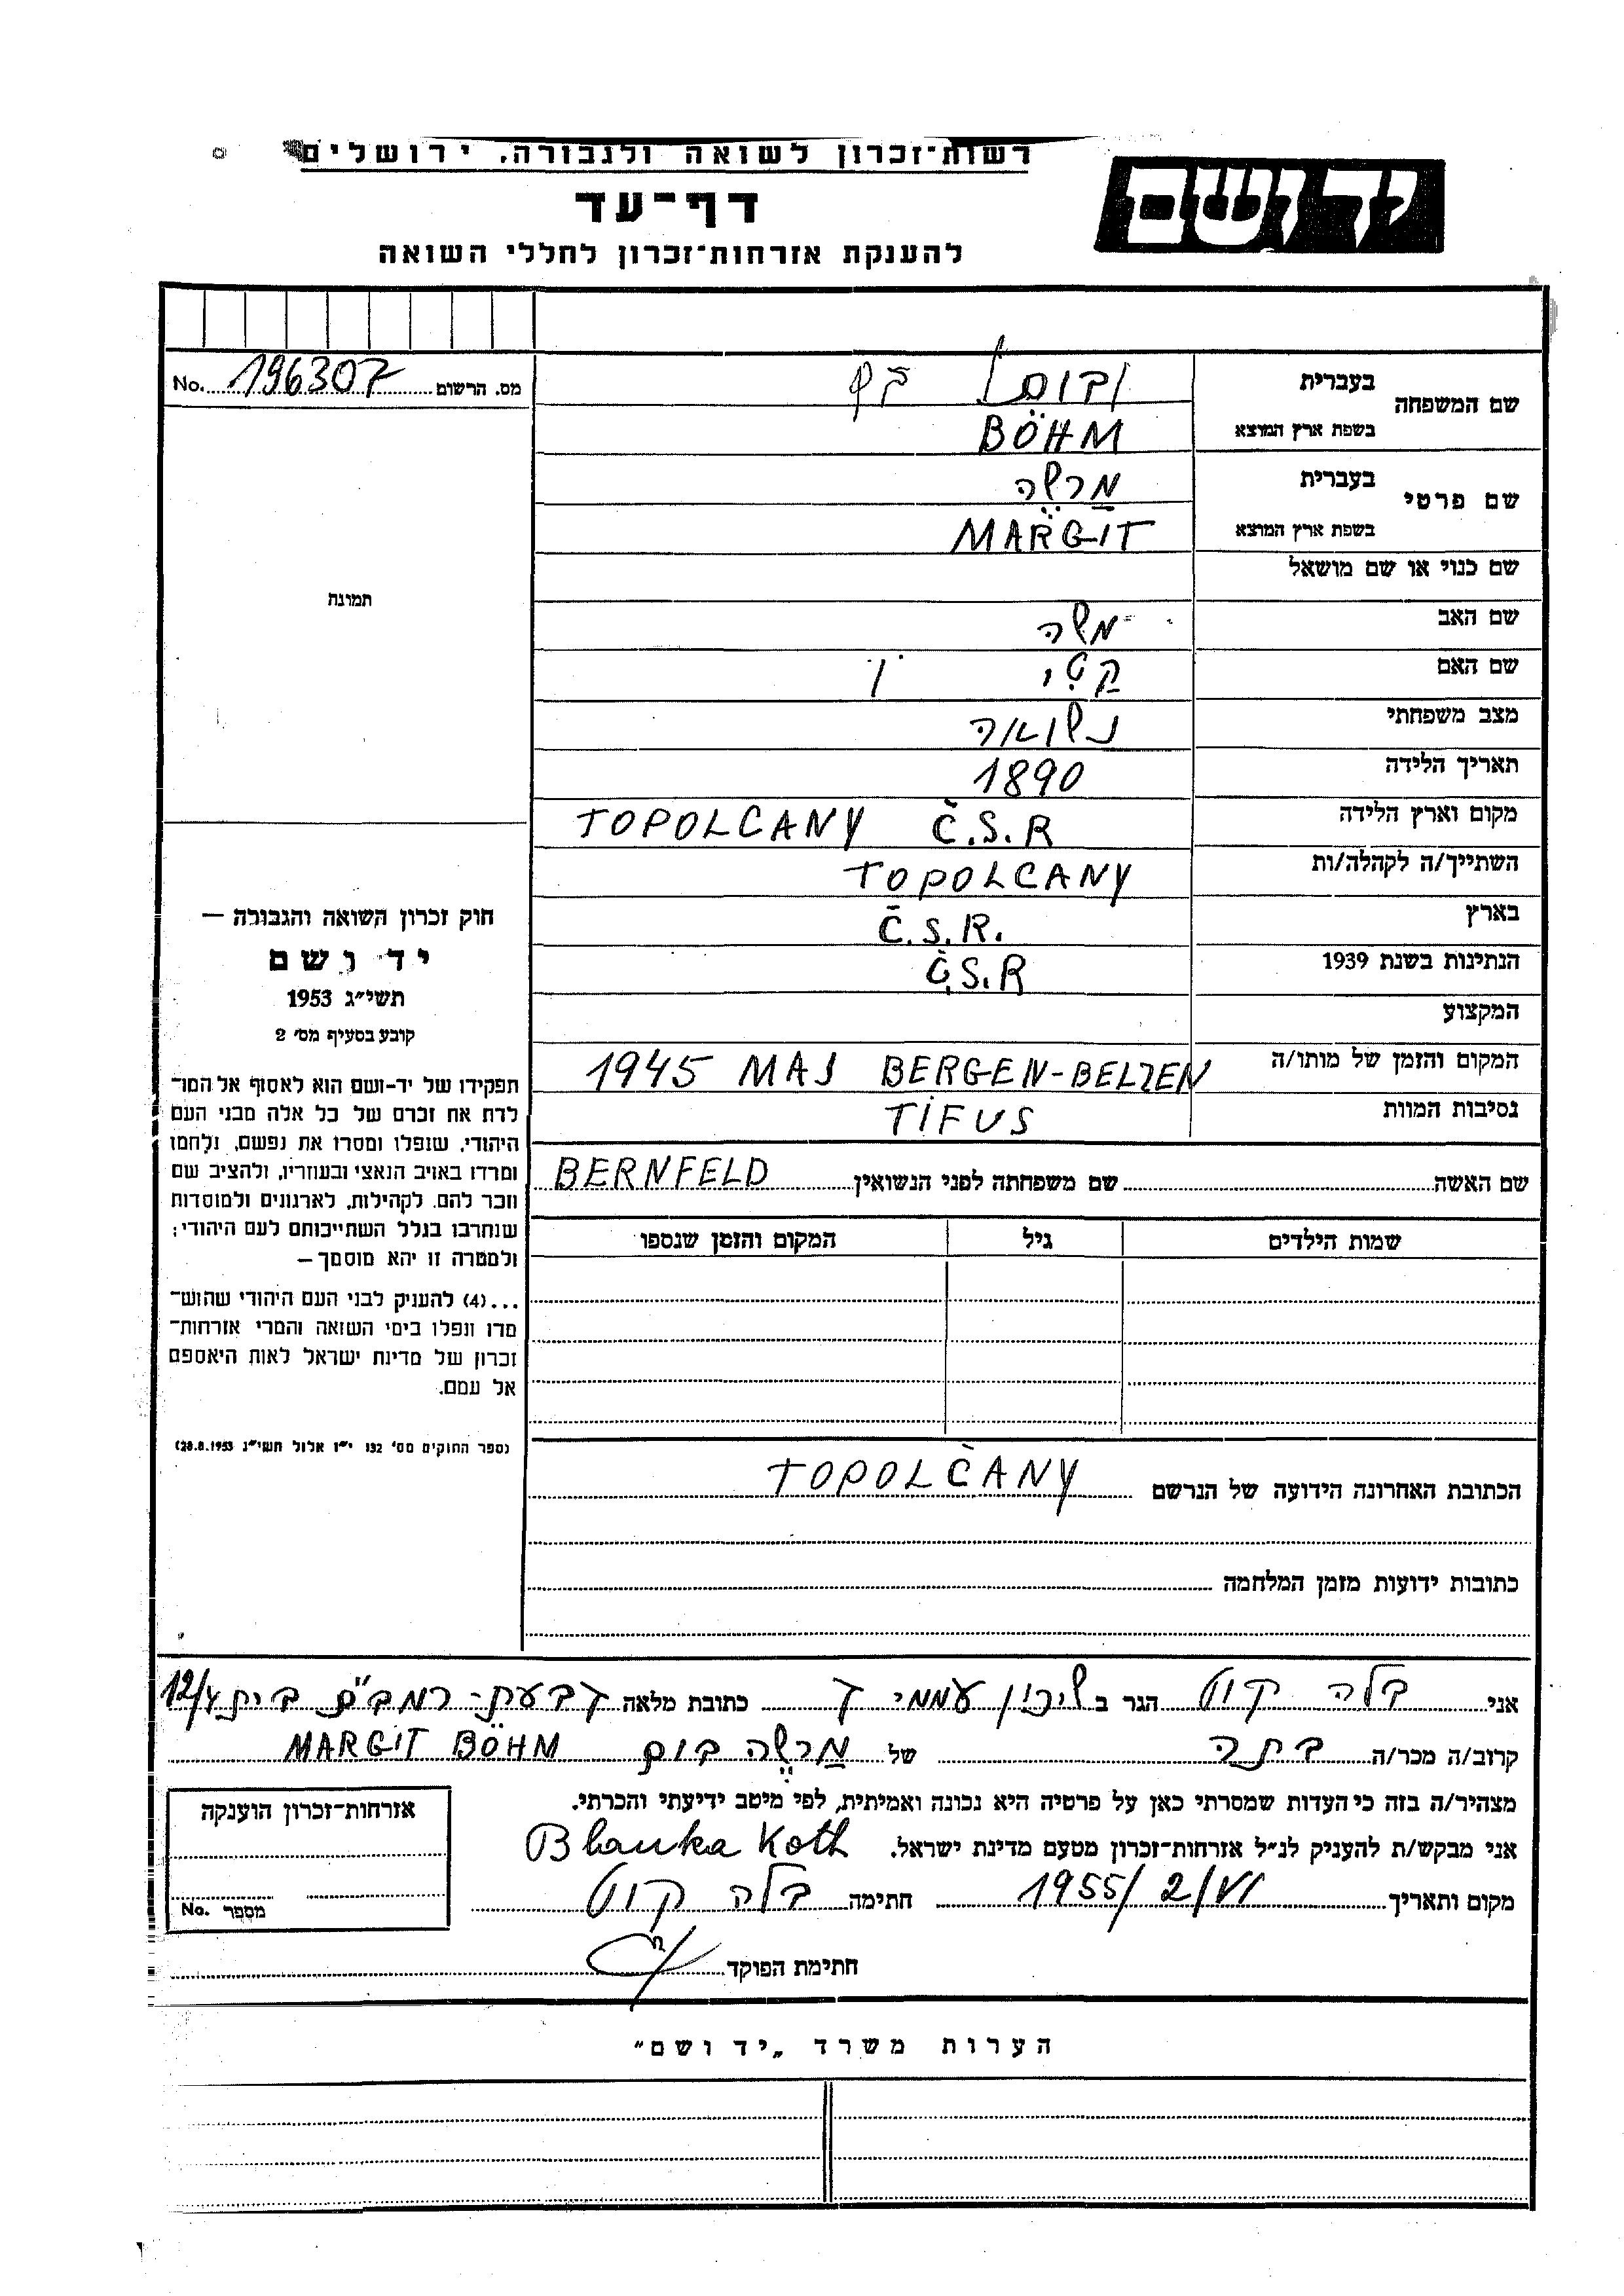 רשות־זכרון לשואה ולגבורה, ירושלים
יד ושם
דף־עד
להענקת אזרחות־זכרון לחללי השואה
מס. הרשום 196307 No.
שם המשפחה בעברית בום
בשפת ארץ המוצא BÖHM
שם פרטי בעברית
בשפת ארץ המוצא MARGIT
שם כנוי או שם מושאל
שם האב משה
שם האם קטי
מצב משפחתי נשואה
תאריך הלידה 1890
מקום וארץ הלידה TOPOLCANY Č.S.R
השתייך/ה לקהלה/ות TOPOLCANY
בארץ Č.S.R.
הנתינות בשנת 1939 Č.S.R
המקצוע
המקום והזמן של מותו/ה 1945 MAJ BERGEN-BELZEN
נסיבות המוות TIFUS
שם האשה שם משפחתה לפני הנשואין BERNFELD
שמות הילדים גיל המקום והזמן שנספו
הכתובת האחרונה הידועה של הנרשם TOPOLČANY
כתובות ידועות מזמן המלחמה
תמונה
חוק זכרון השואה והגבורה —
יד ושם
תשי״ג 1953
קובע בסעיף מס׳ 2
תפקידו של יד-ושם הוא לאסוף אל המו־
לדת את זכרם של כל אלה מבני העם
היהודי, שנפלו ומסרו את נפשם, נלחמו
ומרדו באויב הנאצי ובעוזריו, ולהציב שם
וזכר להם, לקהילות, לארגונים ולמוסדות
שנחרבו בגלל השתייכותם לעם היהודי;
ולמטרה זו יהא מוסמך —
...(4) להעניק לבני העם היהודי שהוש־
מדו ונפלו בימי השואה והמרי אזרחות־
זכרון של מדינת ישראל לאות היאספם
אל עמם.
(ספר החוקים מס׳ 132 י״ז אלול תשי״ג 28.8.1953)
אני בלה קוט הגר ב שיכון עממי ד כתובת מלאה גבעת-רמב"ם בית 12/4
קרוב/ה מכר/ה בתה של בום MARGIT BÖHM
מצהיר/ה בזה כי העדות שמסרתי כאן על פרטיה היא נכונה ואמיתית, לפי מיטב ידיעתי והכרתי.
אני מבקש/ת להעניק לנ״ל אזרחות־זכרון מטעם מדינת ישראל. Blanka Koth
מקום ותאריך 1955/2/VI חתימה בלה קוט
חתימת הפוקד
אזרחות־זכרון הוענקה
מספר No.
הערות משרד „יד ושם״